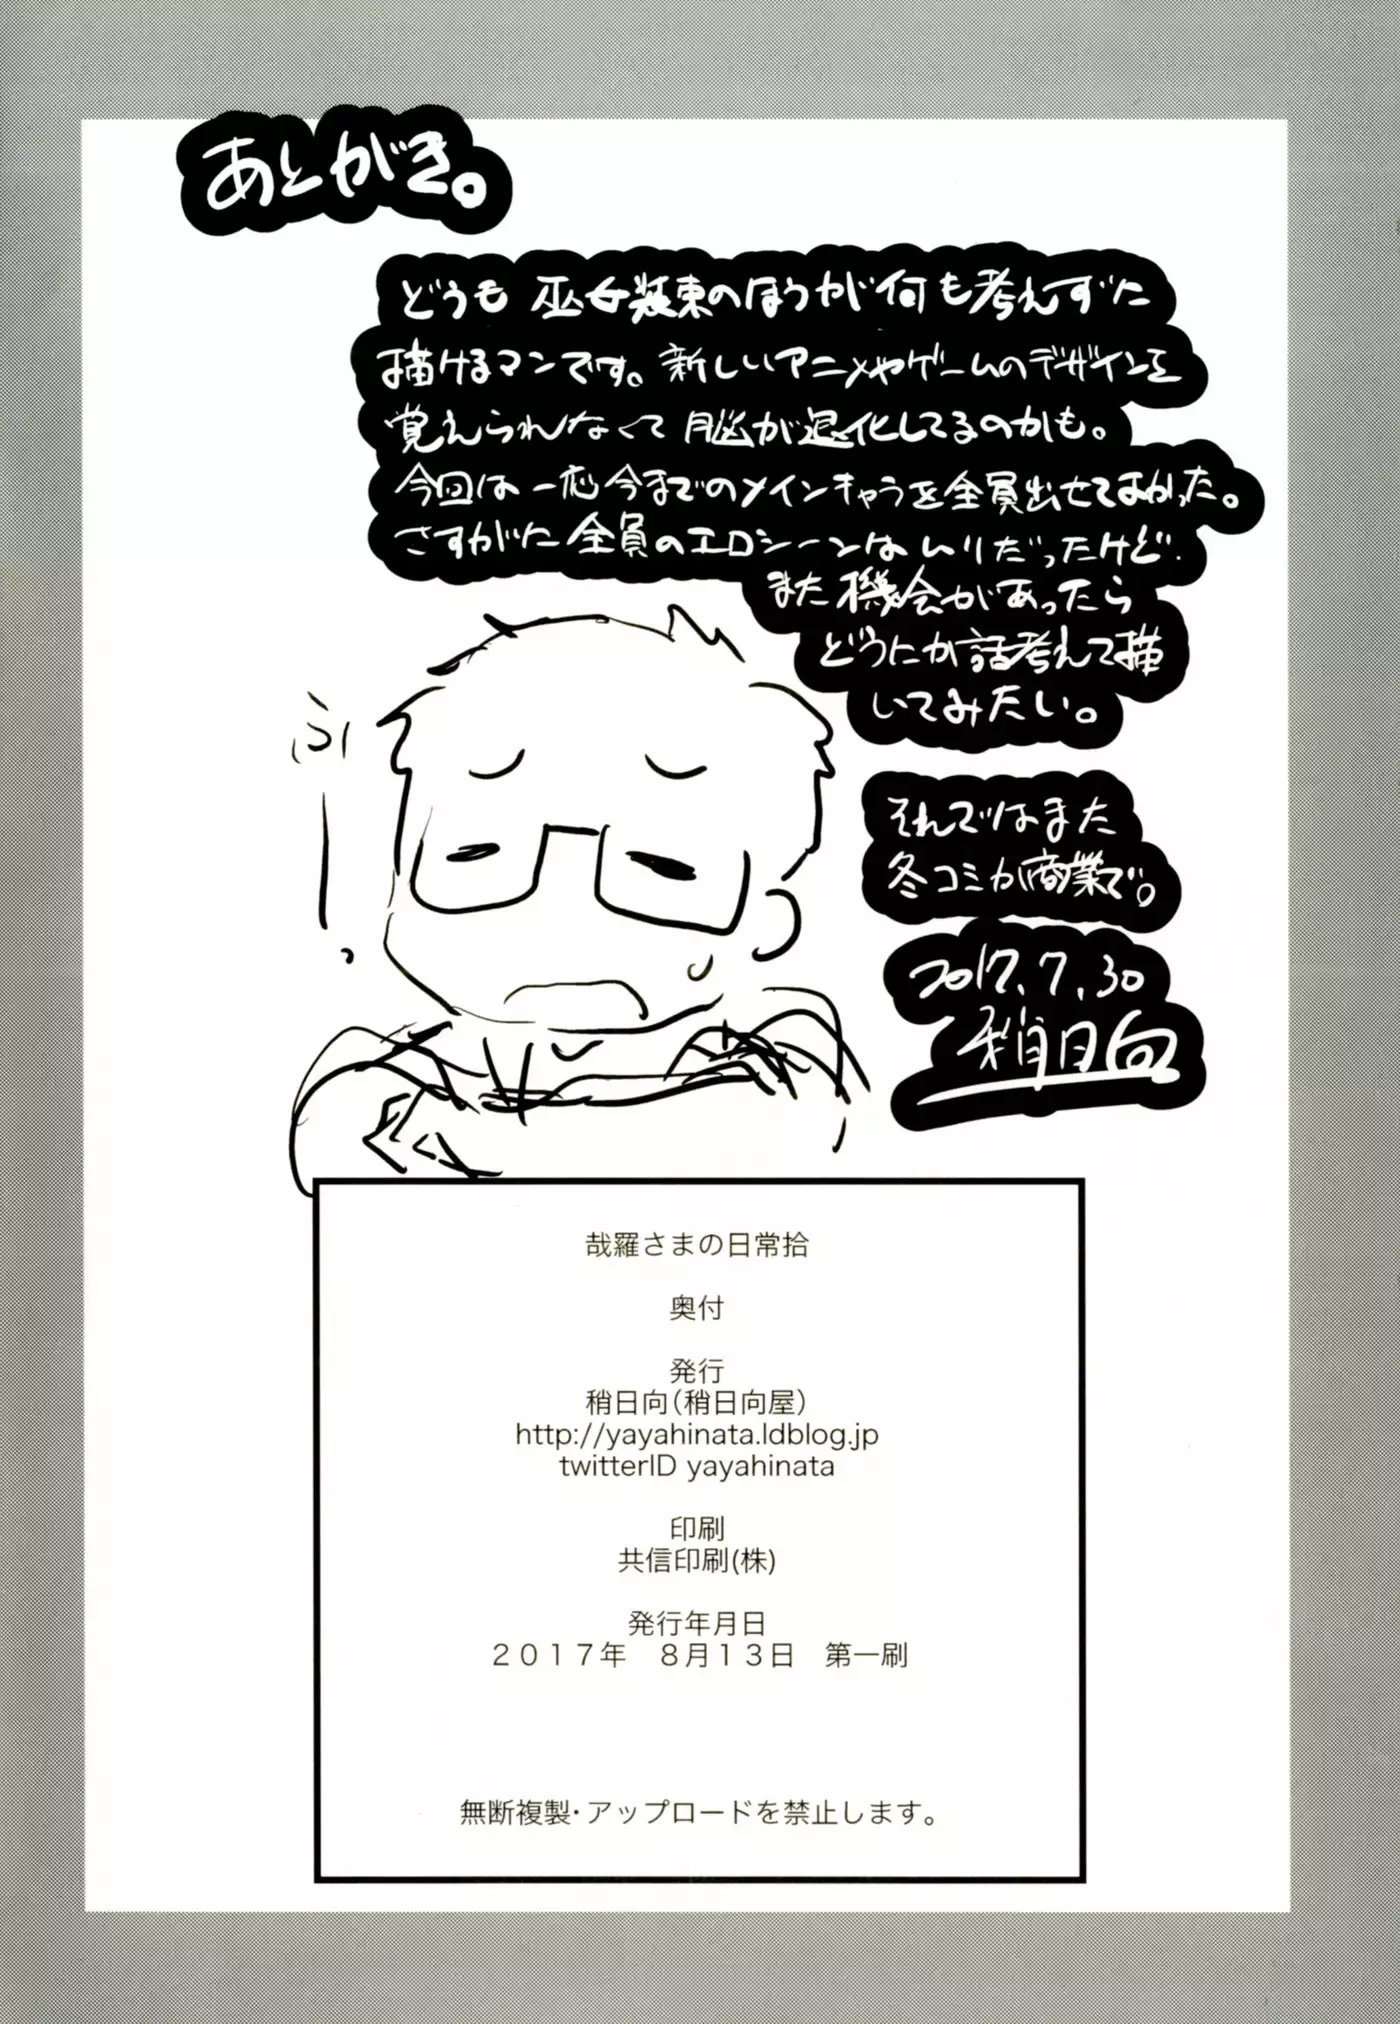 あとがき。
どうも 巫女装束のほうが何も考えずに
描けるマンです。新しいアニメやゲームのデザインを
覚えられなくて 脳が退化してるのかも。
今回は一応今までのメインキャラを全員出せてよかった。
さすがに全員のエロシーンはムリだったけど
また機会があったら
どうにか話考えて描
いてみたい。
ふぅー。
それではまた
冬コミか商業で。
2017.7.30
稍日向
哉羅さまの日常拾
奥付
発行
稍日向(稍日向屋)
http://yayahinata.ldblog.jp
twitterID yayahinata
印刷
共信印刷(株)
発行年月日
2017年 8月13日 第一刷
無断複製・アップロードを禁止します。